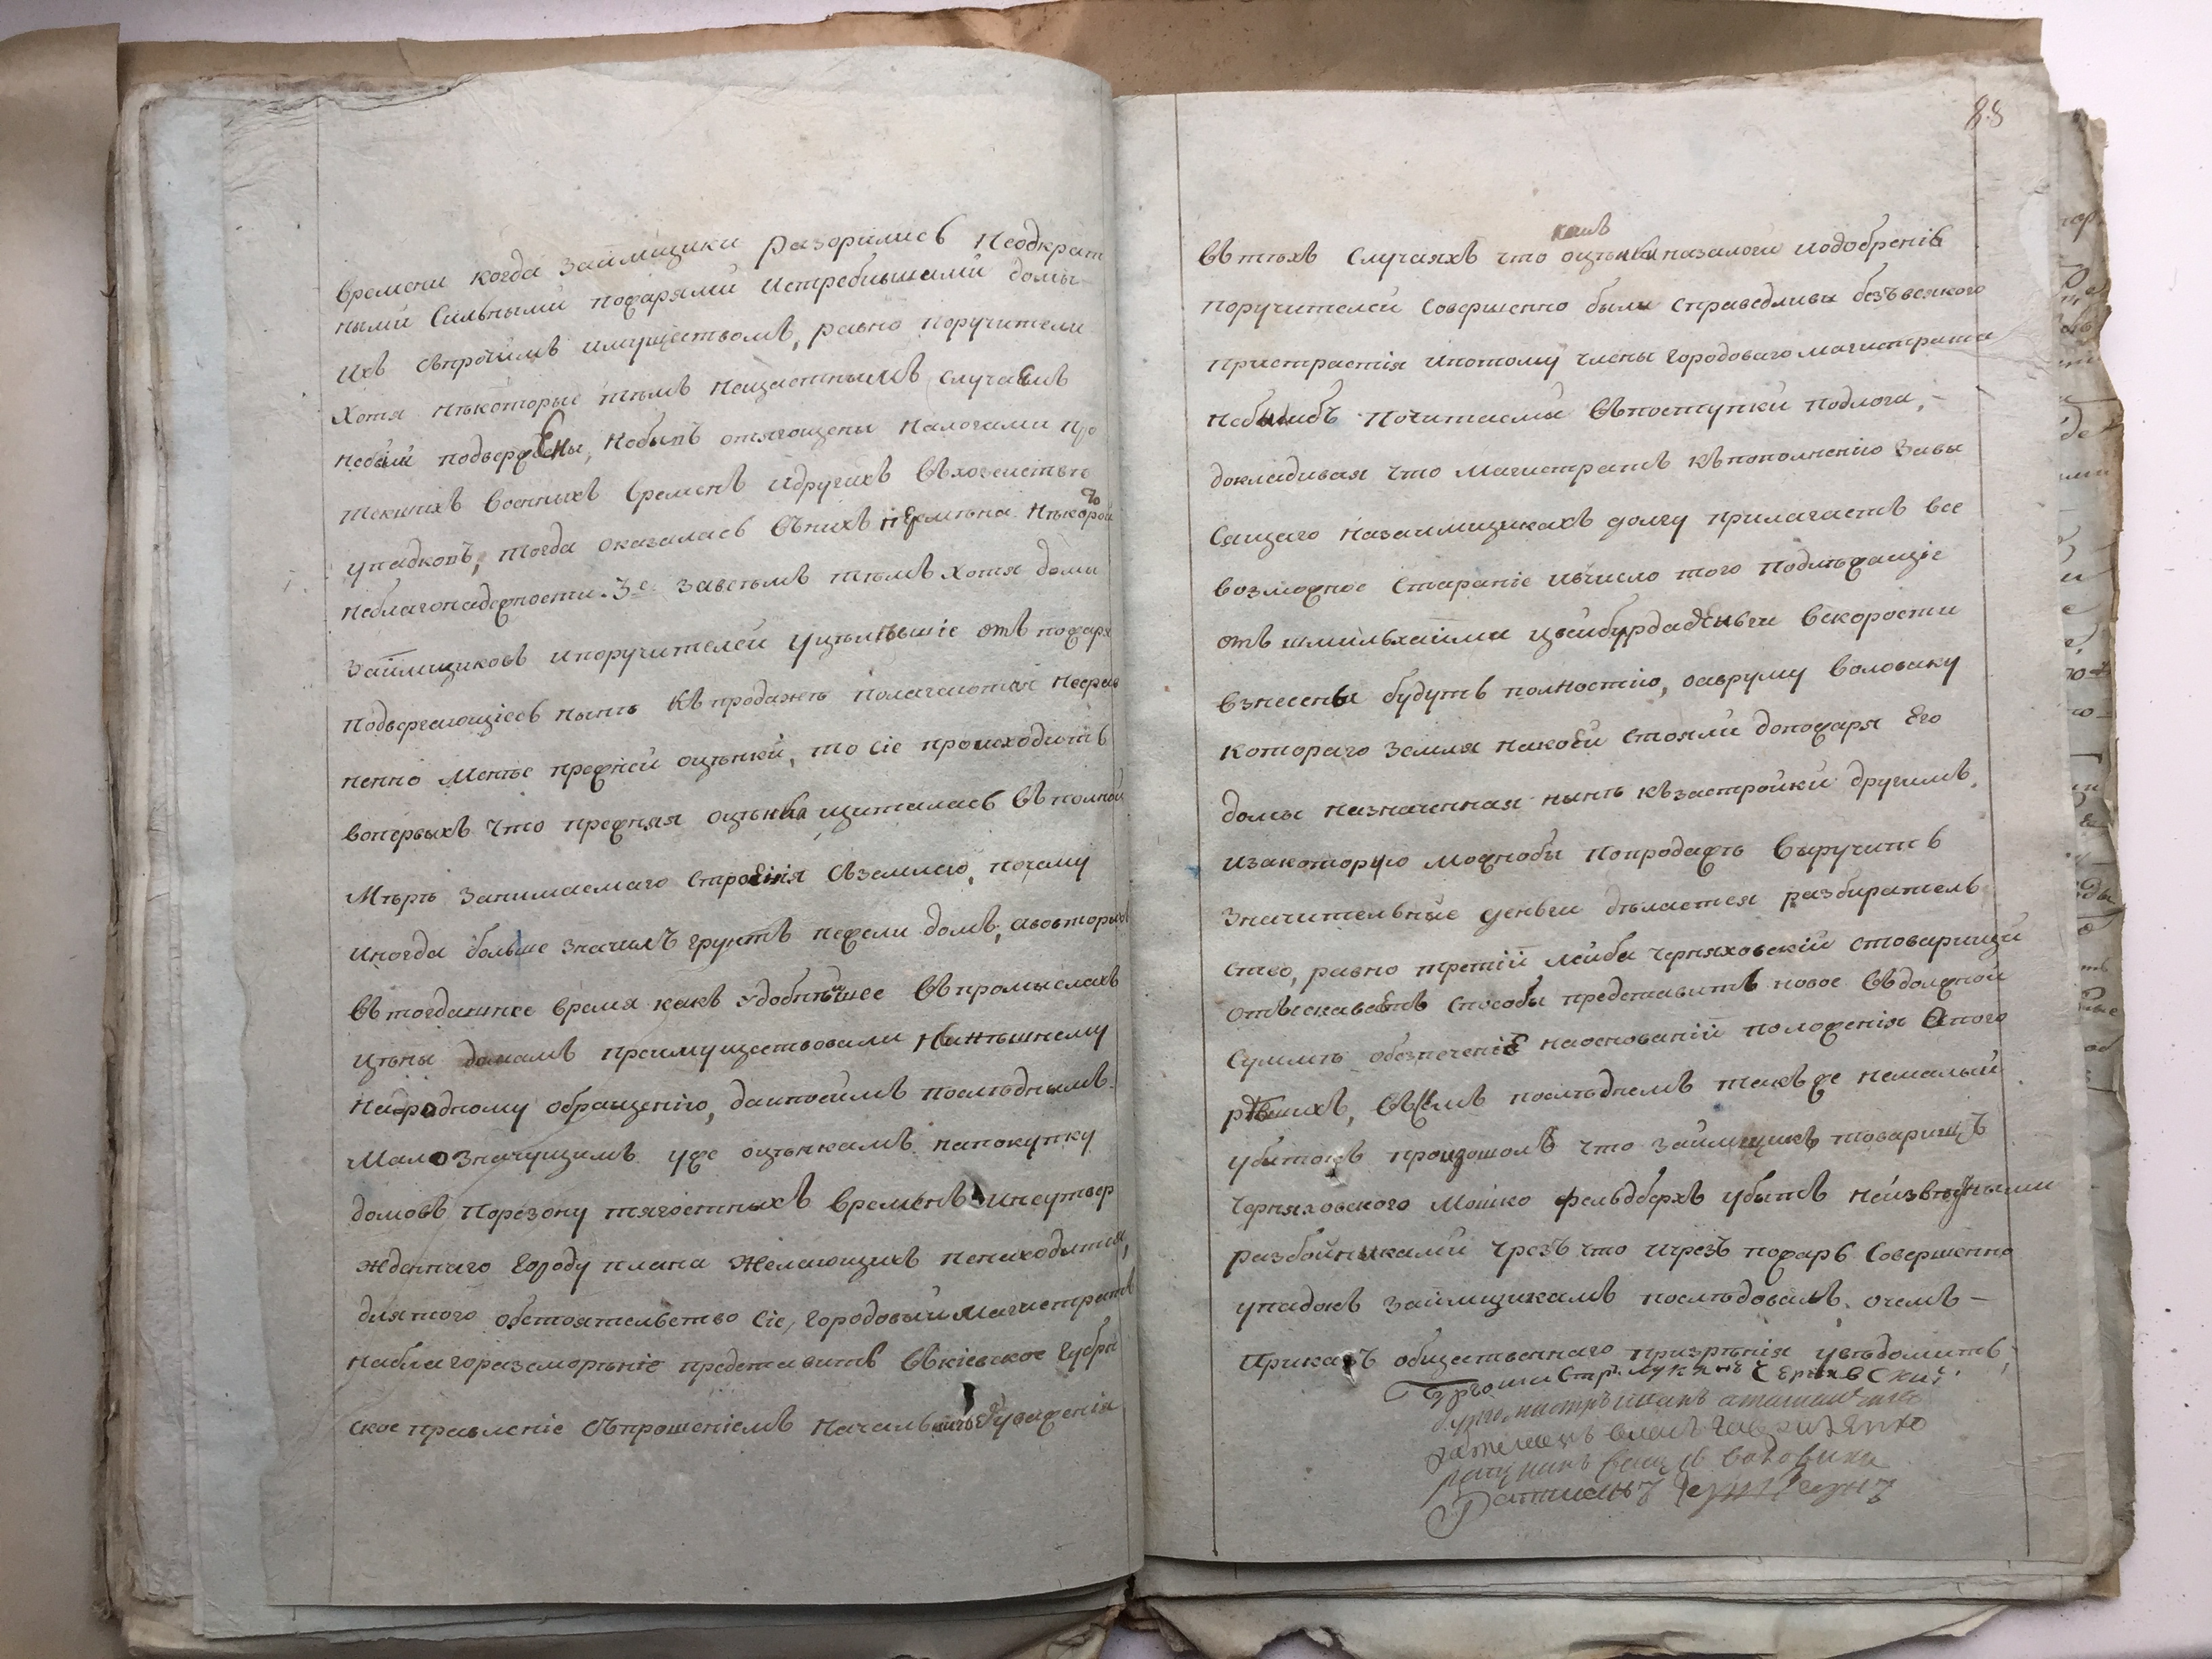 времени когда займщики разорились Неодкрат
ными Сильными пожарами Истребившими домы
Ихъ съпрочимъ имуществомъ, равно поручители
Хотя нѣкоторые тѣмъ нещастнымъ случаемъ
небыли подвержены, Нобывъ отягощены налогами про
текшихъ военныхъ временъ идругихъ въхозяиствѣ
упадковъ, тогда оказалась внихъ перемѣна нѣкоторой
неблагонадежности. 3е завсемъ тѣмъ хотя домы
займщиковъ ипоручителей уцѣлѣвшіе отъ пожара
подвергающіесь нынѣ къпродажѣ полагаются несрав
ненно менѣе прежней оцѣнки, то сіе происходитъ
вопервыхъ что прежняя оцѣнка щиталась въполной
мѣрѣ занимаемаго строенія съземлею, почему
иногда больше значилъ грунтъ нежели домъ, авовторыхъ
въ тогдашнее время какъ удобнѣйшее въпромыслахъ
цѣны домамъ преимуществовали Нынѣшнему
народному обращенію, даипосимъ послѣднымъ
малозначущимъ уже оцѣнкамъ напокупку
домовъ порезону тягостныхъ временъ инеутвер
жденнаго городу плана желающихъ ненаходится,
длятого обстоятельство сіе, городовый магистратъ
наблагоразсмотрѣніе представить въкіевское Губерн
ское правленіе съпрошеніемъ начальничьего уваженія
88
какъ
въ тѣхъ случаяхъ что оцѣнки назалоги иодобреніе
поручителей совершенно были справедливы безъвсякого
пристрастія ипотому члены городоваго магистрата
небылибъ почитаемы въпоступки подлога,-
докладивая что магистратъ къпополненію завы
сящаго назаимщикахъ долгу прилагаетъ все
возможное стараніе ивчисло того подлежащіе
отъ шмильхайма цвейбурда деньги вскорости
взнесены будутъ полностію, оавруму воловику
котораго земля накоей стояли допожара его
домы назначенная нынѣ къзастройки другимъ,
изакоторую можнобы попродажѣ выручить
значительные деньги дѣлается разбиратель
ство, равно третій лейба черняховскій стоварищи
отыскаваетъ способы представить новое въдолжной
суммѣ обезпеченіе наоснованіи положенія
въсемъ послѣднемъ также немалый
убитокъ произошолъ что займщикъ товарищъ
черняховского мошко фельдберхъ убытъ неизвѣстными
разбойниками чрезъ что ичрезъ пожаръ совершенно
упадокъ займщикамъ послѣдовалъ, очемъ -
Приказъ общественнаго призрѣнія увѣдомить,
бургомистръ иванъ
ратманъ
Ратманъ